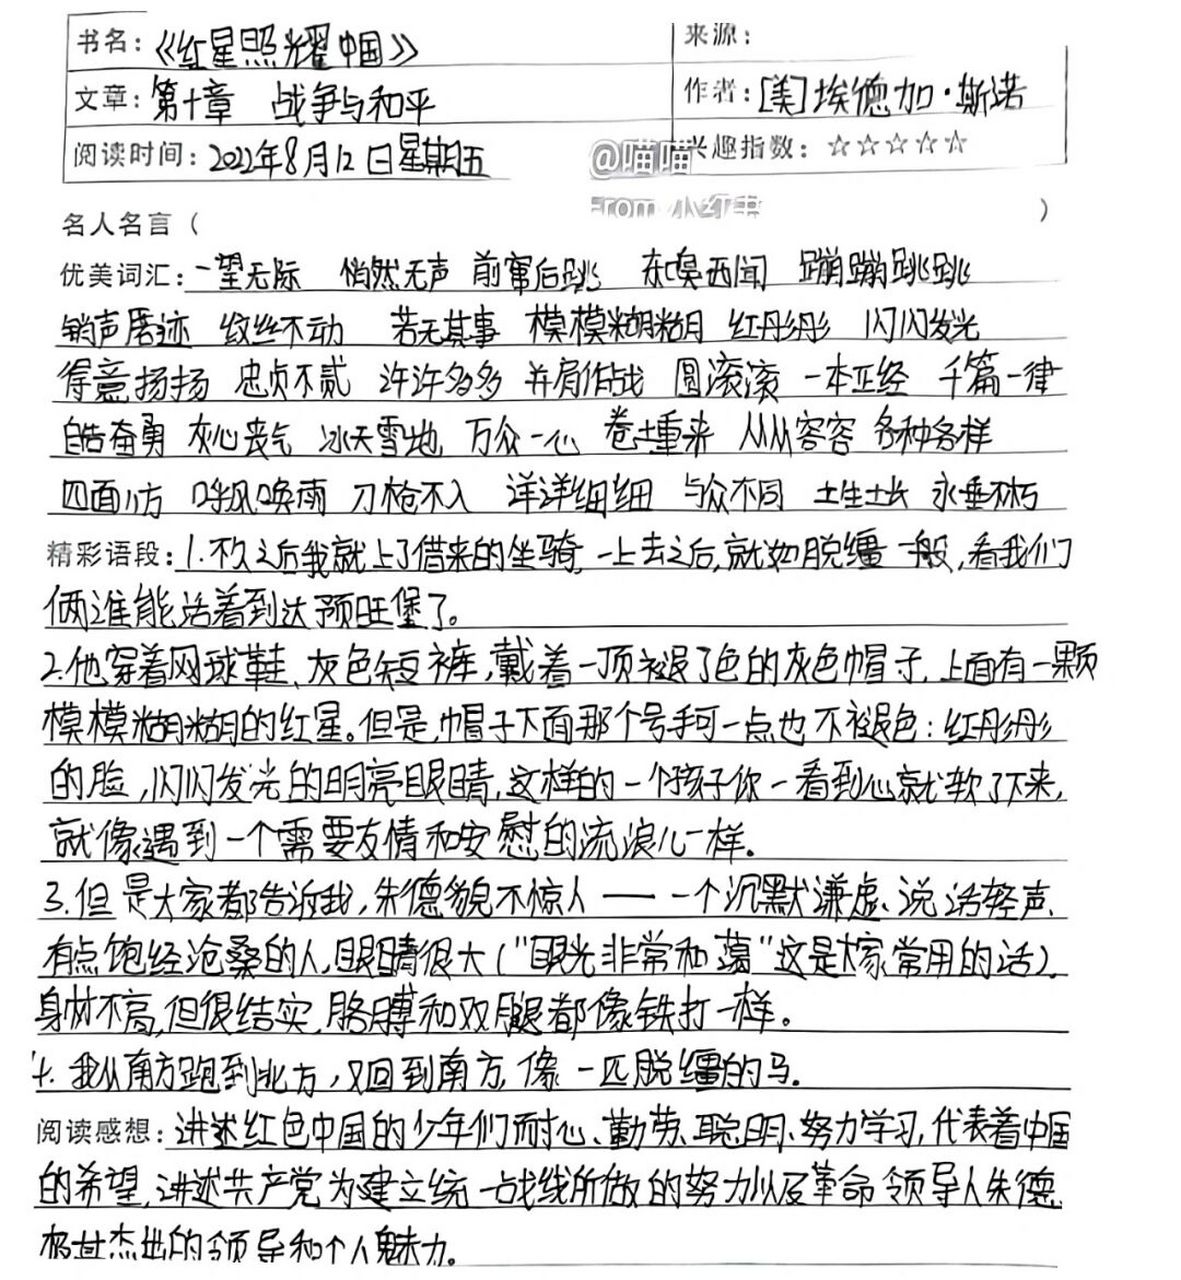 书名：《红星照耀中国》 来源：
文章：第十章 战争与和平 作者：[美]埃德加·斯诺
阅读时间：2022年8月12日星期五 @喵喵 兴趣指数：☆☆☆☆☆
From 小红书
名人名言（ ）
优美词汇：一望无际 悄然无声 前窜后跳 东嗅西闻 蹦蹦跳跳
销声匿迹 纹丝不动 若无其事 模模糊糊 红彤彤 闪闪发光
得意扬扬 忠贞不贰 许许多多 并肩作战 圆滚滚 一本正经 千篇一律
奋勇 灰心丧气 冰天雪地 万众一心 卷土重来 从从容容 各种各样
四面八方 呼风唤雨 刀枪不入 详详细细 与众不同 土生土长 永垂不朽
精彩语段：1.不久之后我就上了借来的坐骑，一上去之后，就如脱缰一般，看我们
俩谁能活着到达预旺堡了。
2.他穿着网球鞋、灰色短裤，戴着一顶褪了色的灰色帽子，上面有一颗
模模糊糊的红星。但是，帽子下面那个号手可一点也不褪色：红彤彤
的脸，闪闪发光的明亮眼睛，这样的一个孩子你一看到心就软了下来，
就像遇到一个需要友情和安慰的流浪儿一样。
3.但是大家都告诉我，朱德貌不惊人——一个沉默谦虚、说话轻声、
有点饱经沧桑的人，眼睛很大（“眼光非常和蔼”这是大家常用的话），
身材不高，但很结实，胳膊和双腿都像铁打一样。
4.我从南方跑到北方，又回到南方，像一匹脱缰的马。
阅读感想：讲述红色中国的少年们耐心、勤劳、聪明、努力学习，代表着中国
的希望，讲述共产党为建立统一战线所做的努力以及革命领导人朱德
极其杰出的领导和个人魅力。